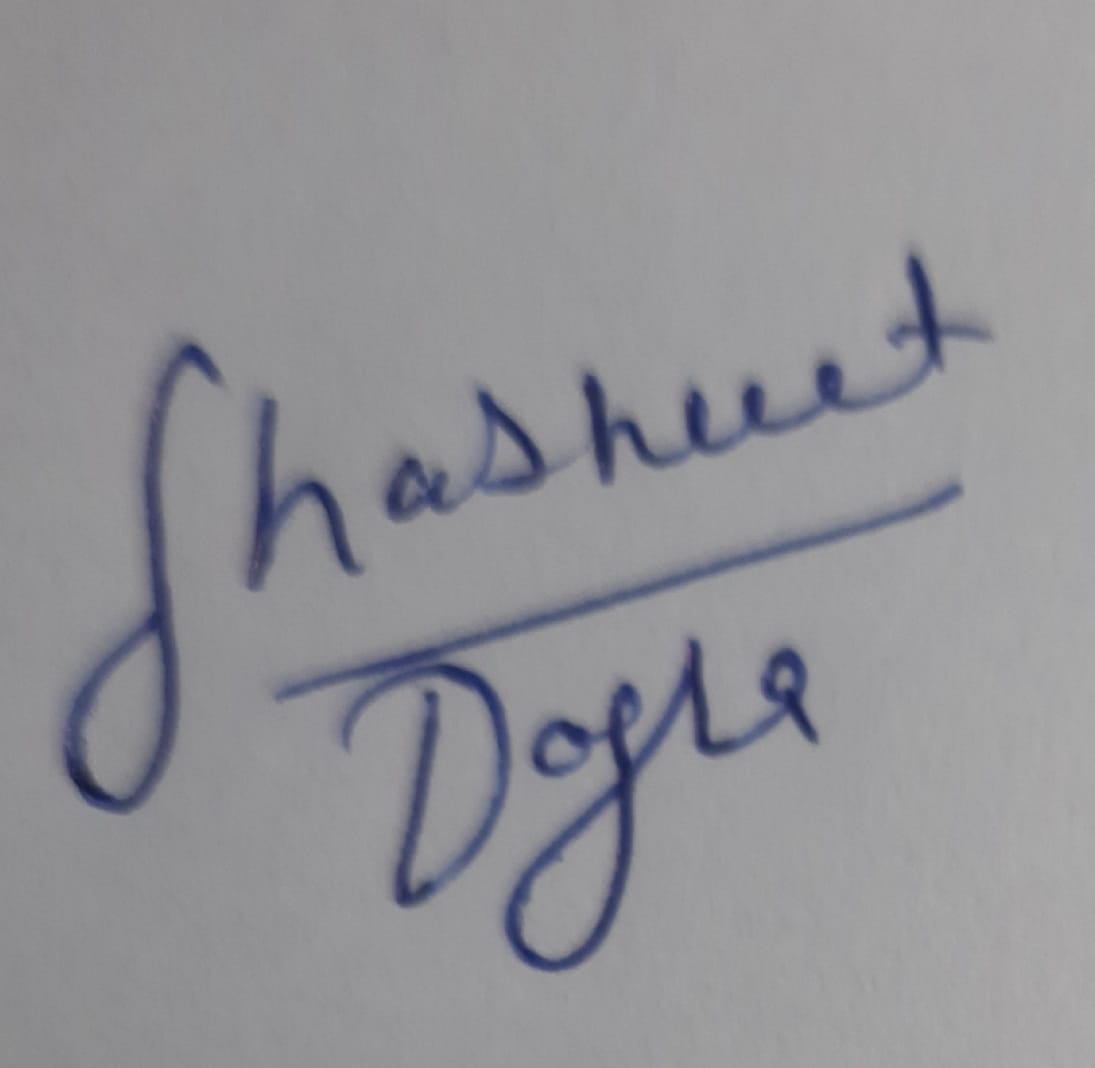 Shashwat
Dogra